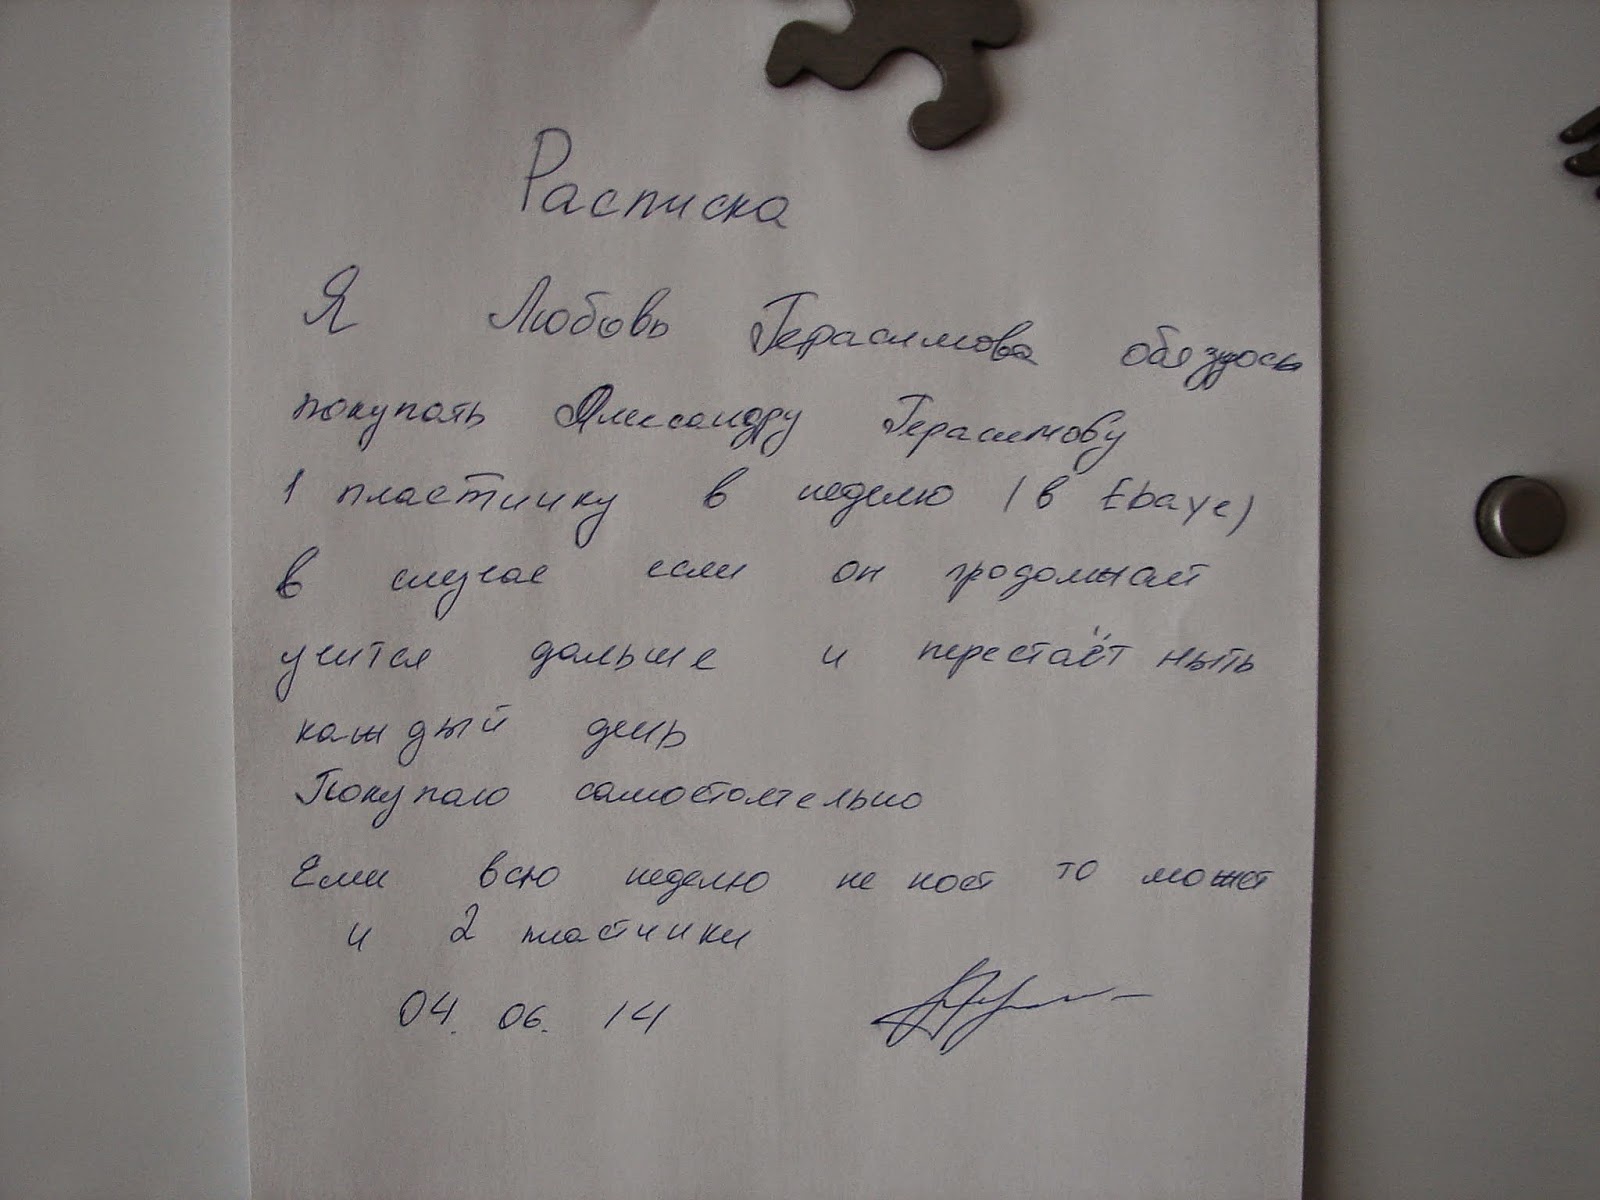 Расписка
Я Любовь Герасимова обязуюсь
покупать Александру Герасимову
1 пластинку в неделю (в Ebaye)
в случае если он продолжает
учится дальше и перестаёт ныть
каждый день
Покупаю самостоятельно
Если всю неделю не ноет то может
и 2 пластинки
04. 06. 14